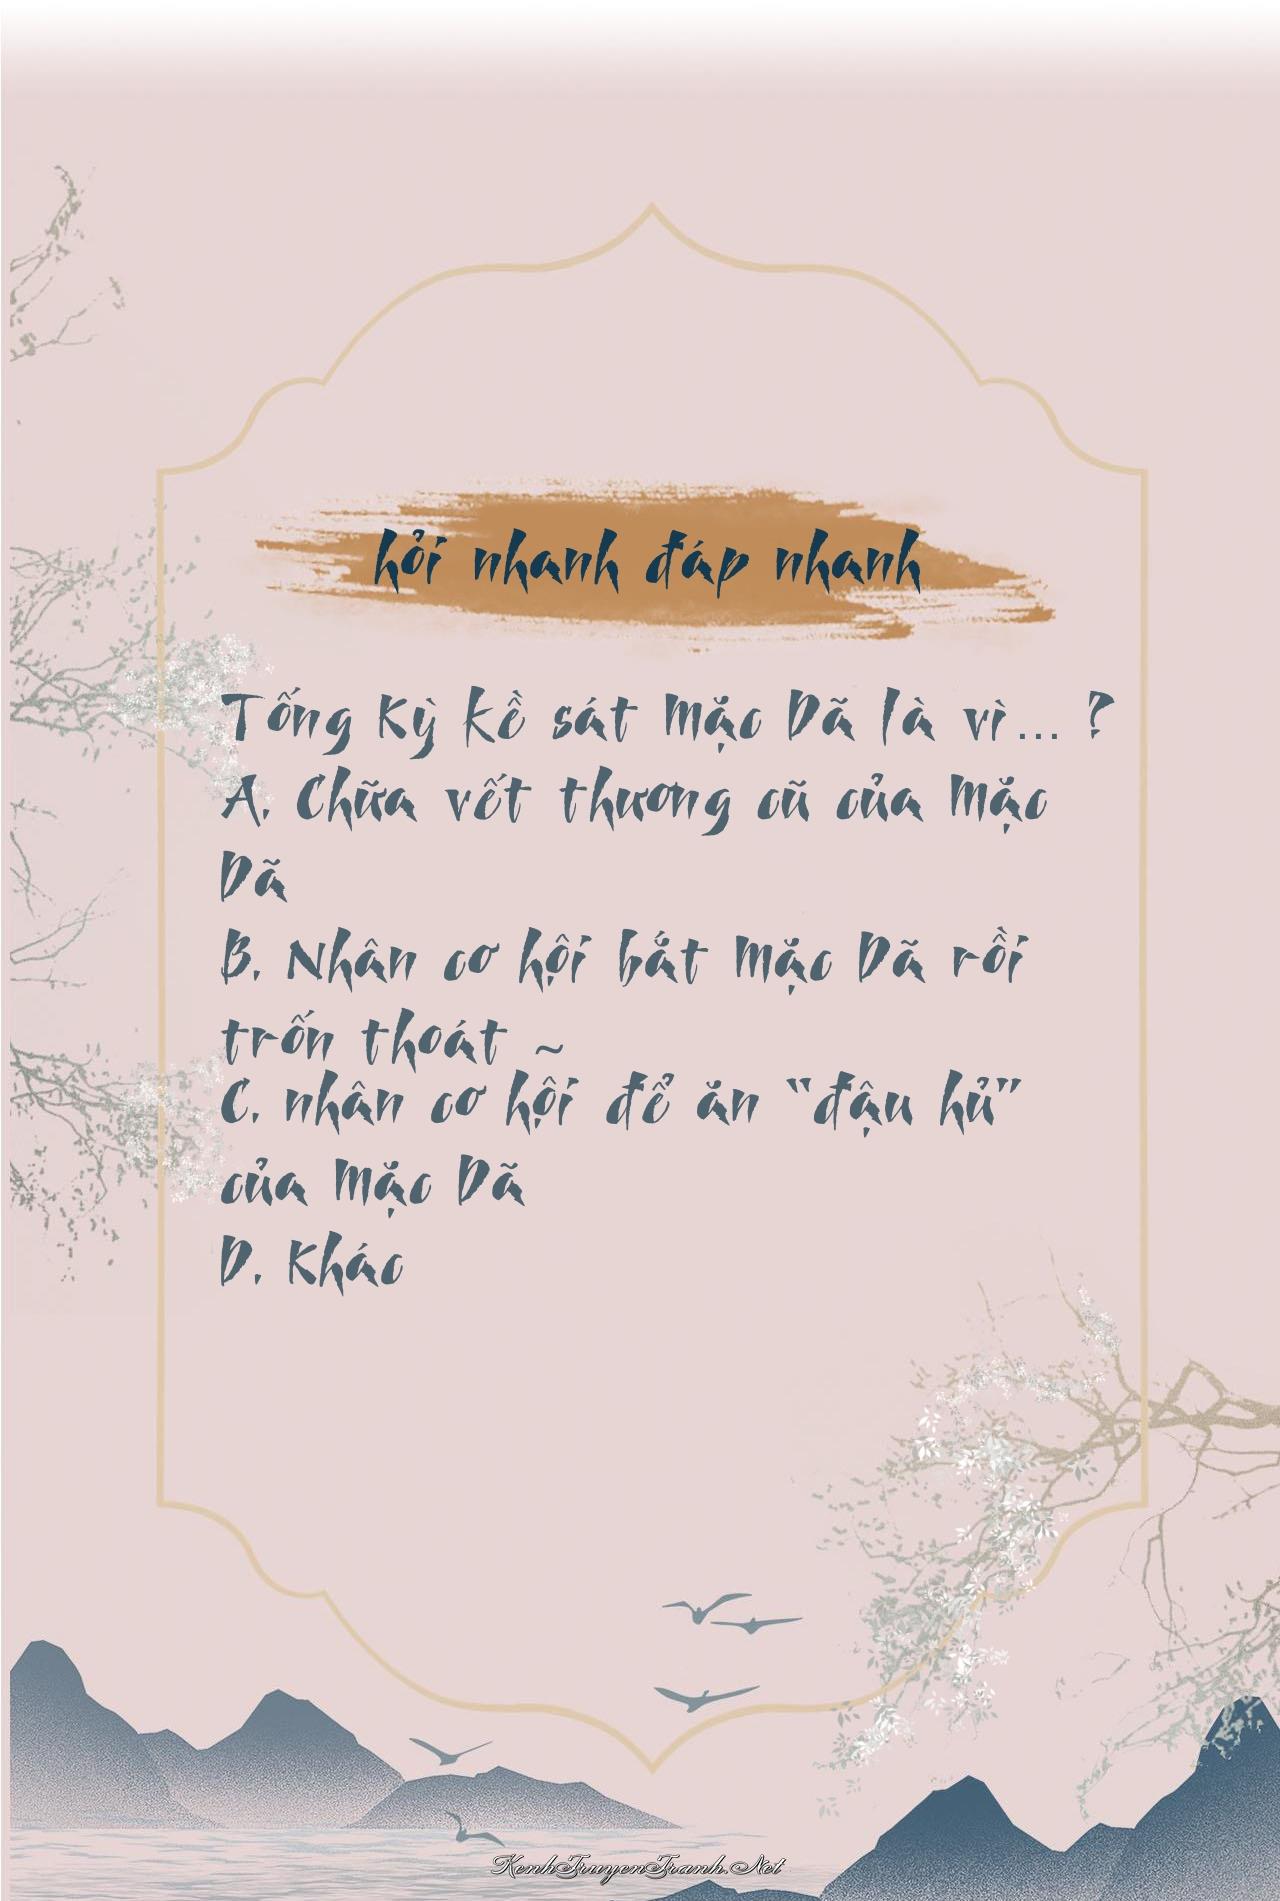 hỏi nhanh đáp nhanh
Tống Kỳ kề sát Mặc Dã là vì... ?
A. Chữa vết thương cũ của Mặc
Dã
B. Nhân cơ hội bắt Mặc Dã rồi
trốn thoát ~
C. nhân cơ hội để ăn "đậu hủ"
của Mặc Dã
D. Khác
KenhTruyenTranh.Net